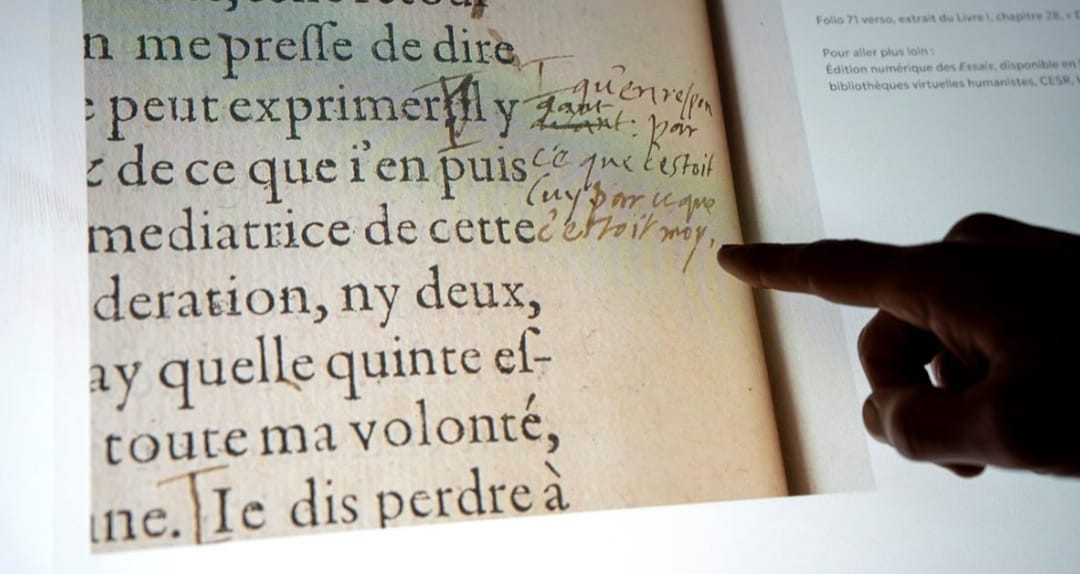 n me preſſe de dire
peut exprimer Il y
qu'en respon
dant: par
de ce que i'en puis
ce que c'estoit
luy par ce que
mediatrice de cette
c'estoit moy,
deration, ny deux,
ay quelle quinte eſ-
toute ma volonté,
ne. Ie dis perdre à
Folio 71 verso, extrait du Livre I, chapitre 28, «
Pour aller plus loin :
Édition numérique des Essais, disponible en
bibliothèques virtuelles humanistes, CESR,